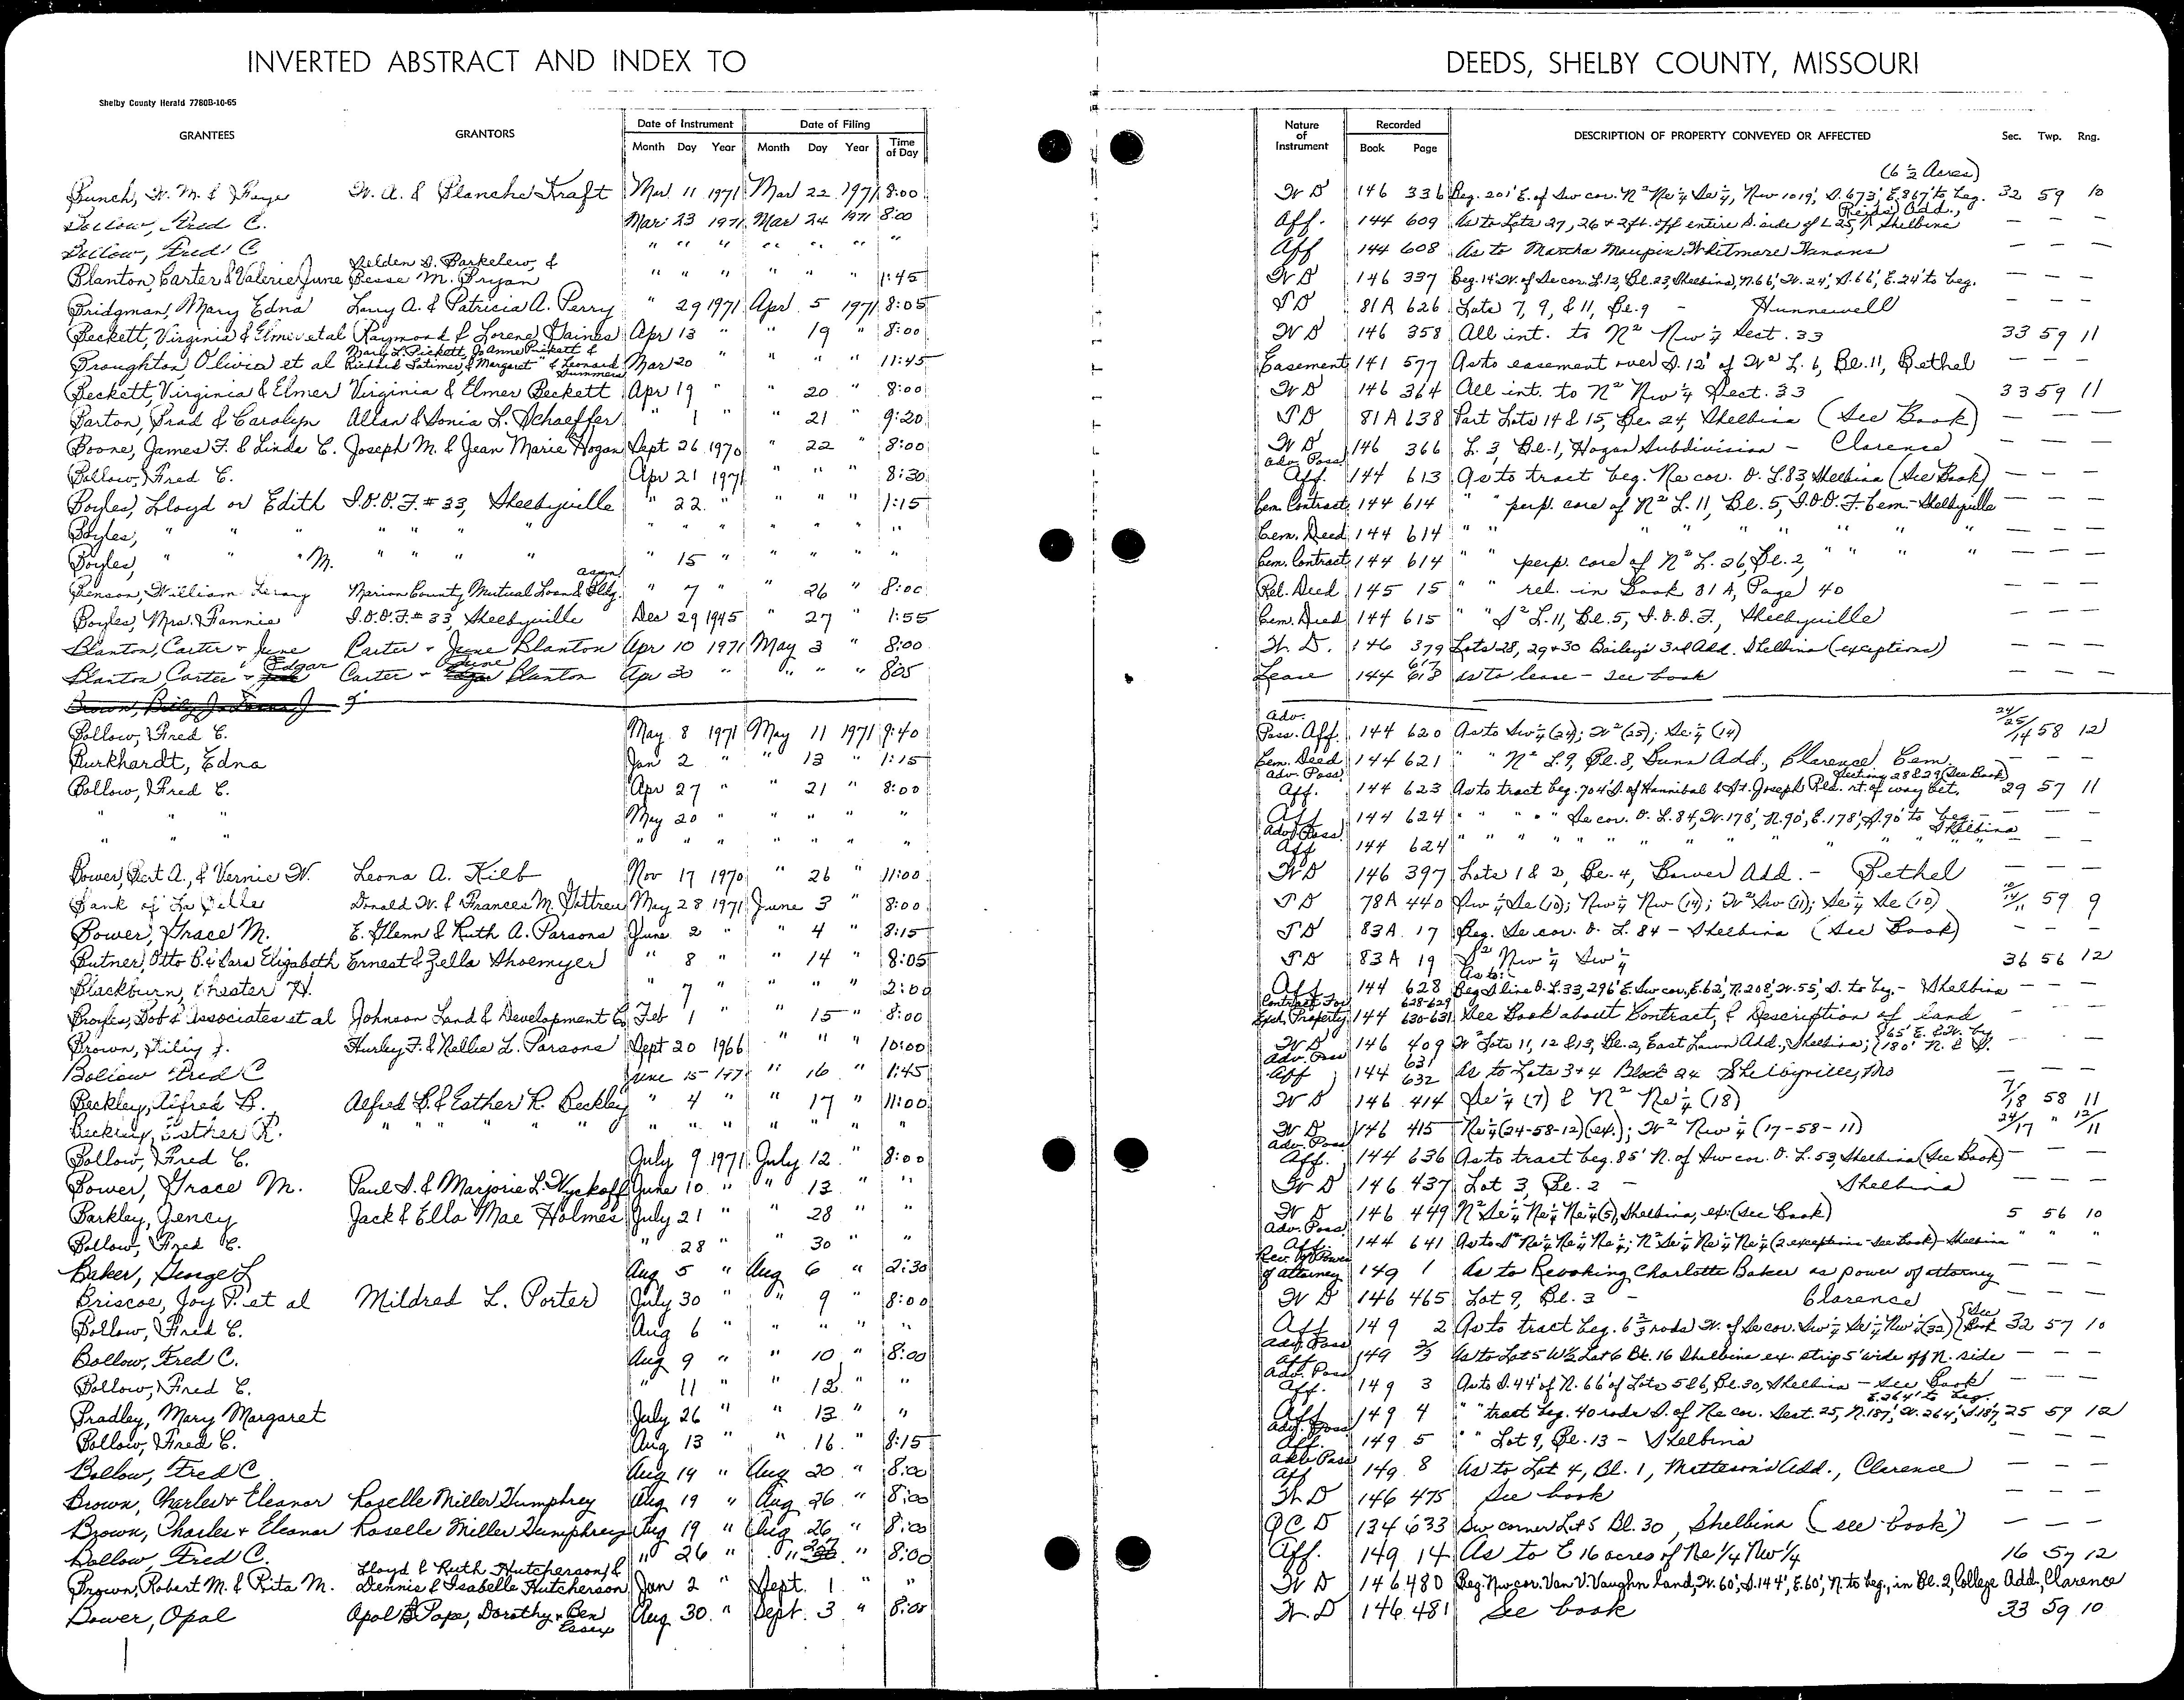 INVERTED ABSTRACT AND INDEX TO DEEDS, SHELBY COUNTY, MISSOURI
Shelby County Herald 7780B-10-65
GRANTEES GRANTORS Date of Instrument Date of Filing Nature of Instrument Recorded DESCRIPTION OF PROPERTY CONVEYED OR AFFECTED Sec. Twp. Rng.
Month Day Year Month Day Year Time of Day Book Page
(6 ½ Acres)
Bunch, W. M. & Faye W. A. & Blanche Kraft Mar 11 1971 Mar 22 1971 8:00 W D 146 336 Beg. 201' E. of Sw cor. N² Ne ¼ Se ¼, Nw 1019', S. 673', E. 867' to beg. 32 59 10
Bollow, Fred C. Mar 23 1971 Mar 24 1971 8:00 Aff. 144 609 As to Lots 27, 26 & 2 ft. off entire S. side of L 25, Reids Add., Shelbina — — —
Bollow, Fred C " " " " " " " Aff 144 608 As to Martha Maupin Whitmore Winans — — —
Blanton, Carter & Valerie June Selden S. Barkelew, & Besse M. Bryan " " " " " " 1:45 W D 146 337 Beg. 14' W. of Se cor. L. 12, Bl. 23, Shelbina, N. 66', W. 24', S. 66', E. 24' to beg. — — —
Bridgman, Mary Edna Larry A. & Patricia A. Perry " 29 1971 Apr 5 1971 8:05 T D 81A 626 Lots 7, 9, & 11, Bl. 9 - Hunnewell — — —
Beckett, Virginia & Elmer et al Raymond & Lorene Gaines Apr 13 " " 19 " 8:00 W D 146 358 All int. to N² Nw ¼ Sect. 33 33 59 11
Broughton, Olivia et al Mary L. Pickett, Jo Anne Pickett & Richard Latimer, & Margaret " & Leonard Summers Mar 20 " " " " 11:45 Easement 141 577 As to easement over S. 12' of W² L. 6, Bl. 11, Bethel — — —
Beckett, Virginia & Elmer Virginia & Elmer Beckett Apr 19 " " 20 " 8:00 W D 146 364 All int. to N² Nw ¼ Sect. 33 33 59 11
Barton, Brad & Carolyn Allan & Sonia L. Schaeffer " 1 " " 21 " 9:20 T D 81A 638 Part Lots 14 & 15, Bl. 24, Shelbina (See Book) — — —
Boone, James F. & Linda C. Joseph M. & Jean Marie Hogan Sept 26 1970 " 22 " 8:00 W D 146 366 L. 3, Bl. 1, Hogan Subdivision - Clarence — — —
Bollow, Fred C. Apr 21 1971 " " " 8:30 Adv. Poss. Aff. 144 613 As to tract beg. Ne cor. O. L. 83, Shelbina (See Book) — — —
Boyles, Lloyd or Edith I.O.O.F. # 33, Shelbyville " 22 " " " " 1:15 Cem. Contract 144 614 " " perp. care of N² L. 11, Bl. 5, I.O.O.F. Cem. - Shelbyville — — —
Boyles, " " " " " " " " " " " " " Cem. Deed 144 614 " " " " " " " — — —
Boyles, " " " M. " " " " " 15 " " " " " Cem. Contract 144 614 " " perp. care of N² L. 26, Bl. 2, " " " — — —
Benson, William Leroy Marion County Mutual Loan & Bldg. assn " 7 " " 26 " 8:00 Rel. Deed 145 15 " " rel. in Book 81 A, Page 40 — — —
Boyles, Mrs. Fannie I.O.O.F. # 33, Shelbyville Dec 29 1945 " 27 " 1:55 Cem. Deed 144 615 " " S² L. 11, Bl. 5, I.O.O.F., Shelbyville — — —
Blanton, Carter & June Carter & June Blanton Apr 10 1971 May 3 " 8:00 W. D. 146 379 Lots 28, 29 & 30 Bailey's 3rd Add. Shelbina (exceptions) — — —
Blanton, Carter & Edgar Carter & June Blanton Apr 30 " " " " 805 Lease 144 617 618 as to lease - see book — — —
Brown, Billy J
Bollow, Fred C. May 8 1971 May 11 1971 9:40 Adv. Poss. Aff. 144 620 As to Sw ¼ (24); W² (25); Se ¼ (14) 24/25/14 58 12
Burkhardt, Edna Jan 2 " " 13 " 1:15 Cem. Deed 144 621 " " N² L. 9, Bl. 8, Dunn Add., Clarence Cem. — — —
Bollow, Fred C. Apr 27 " " 21 " 8:00 Adv. Poss. Aff. 144 623 As to tract beg. 704' S. of Hannibal & St. Joseph Rd. rt. of way bet. Sections 28 & 29 (See Book) 29 57 11
" " " May 20 " " " " " Aff 144 624 " " " " Se cor. O. L. 84, W. 178', N. 90', E. 178', S. 90' to beg. - Shelbina — — —
" " " " " " " " " " Adv. Poss. Aff 144 624 " " " " " " " " " " — —
Bower, Bert A., & Vernie W. Leona A. Kilb Nov 17 1970 " 26 " 11:00 W D 146 397 Lots 1 & 2, Bl. 4, Bower Add. - Bethel — — —
Bank of La Belle Donald W. & Frances M. May 28 1971 June 3 " 8:00 T D 78A 440 Sw ¼ Se (10); Nw ¼ Nw (14); W² Sw (11); Se ¼ Se (10) 59 9
Bower, Grace M. E. Glenn & Ruth A. Parsons June 2 " " 4 " 8:15 T D 83A 17 Beg. Se cor. O. L. 84 - Shelbina (See Book) - - -
Butner, Otto B. & Cara Elizabeth Ernest & Zella Shoemyer " 8 " " 14 " 8:05 T D 83A 19 S² Nw ¼ Sw ¼ 36 56 12
Blackburn, Chester H. " 7 " " " " 2:00 Aff 144 628 As to: Beg. S line O. L. 33, 296' E. Sw cor., E. 62', N. 208', W. 55', S. to beg. - Shelbina — — —
Broyles, Bob & Associates et al Johnson Land & Development Co. Feb 1 " " 15 " 8:00 Contract For Exch. Property 144 628-629 630-631 See Book about Contract, & Description of land — — —
Brown, Riley J. Hurley F. & Nellie L. Parsons Sept 20 1966 " " " 10:00 W D 146 409 W² Lots 11, 12 & 13, Bl. 2, East Lawn Add., Shelbina; (65' E. & W. by 180' N. & S. — — —
Bollow Fred C June 15 1971 " 16 " 1:45 Adv. Poss Aff 144 631 632 As to Lots 3 + 4 Block 24 Shelbyville, Mo — — —
Beckley, Alfred B. Alfred B. & Esther R. Beckley " 4 " " 17 " 11:00 W D 146 414 Se ¼ (7) & N² Ne ¼ (18) 7/18 58 11
Beckley, Esther R. " " " " " " " " " " " " W D 146 415 Ne ¼ (24-58-12) (ex.); W² Nw ¼ (17-58-11) 24/17 " 12/11
Bollow, Fred C. July 9 1971 July 12 " 8:00 Adv. Poss Aff. 144 636 As to tract beg. 85' N. of Sw cor. O. L. 53, Shelbina (See Book) — — —
Bower, Grace M. Paul S. & Marjorie L. Wyckoff June 10 " " 13 " " W D 146 437 Lot 3, Bl. 2 - Shelbina — — —
Barkley, Gency Jack & Ella Mae Holmes July 21 " " 28 " " W D 146 449 N² Se ¼ Ne ¼ Ne ¼ (5), Shelbina, ex. (See Book) 5 56 10
Bollow, Fred C. " 28 " " 30 " " Adv. Poss Aff. 144 641 As to S² Ne ¼ Ne ¼ Ne ¼; N² Se ¼ Ne ¼ Ne ¼ (2 exceptions - See Book) - Shelbina " " "
Baker, George L Aug 5 " Aug 6 " 2:30 Rev. of Power of attorney 149 1 As to Revoking Charlotte Baker as power of attorney — — —
Briscoe, Joy P. et al Mildred L. Porter July 30 " " 9 " 8:00 W D 146 465 Lot 9, Bl. 3 - Clarence — — —
Bollow, Fred C. Aug 6 " " " " " Aff 149 2 As to tract beg. 6 ⅔ rods W. of Se cor. Sw ¼ Se ¼ Nw ¼ (32) (See Book 32 57 10
Bollow, Fred C. Aug 9 " " 10 " 8:00 Adv. Poss Aff. 149 2/3 As to Lot 5 W½ Lot 6 Bl. 16 Shelbina ex. strip 5' wide off N. side — — —
Bollow, Fred C. " 11 " " 12 " " Adv. Poss Aff. 149 3 As to S. 44' of N. 66' of Lots 5 & 6, Bl. 30, Shelbina - See Book — — —
Bradley, Mary Margaret July 26 " " 13 " " Aff 149 4 " " tract beg. 40 rods S. of Ne cor. Sect. 25, N. 187', W. 264', S. 187', E. 264' to beg. 25 59 12
Bollow, Fred C. Aug 13 " " 16 " 8:15 Adv. Poss Aff. 149 5 " " Lot 9, Bl. 13 - Shelbina — — —
Bollow, Fred C. Aug 14 " Aug 20 " 8:00 Adv. Poss Aff 149 8 As to Lot 4, Bl. 1, Matteson's Add., Clarence — — —
Brown, Charles & Eleanor Roselle Miller Humphrey Aug 19 " Aug 26 " 8:00 W D 146 475 See book — — —
Brown, Charles & Eleanor Roselle Miller Humphrey Aug 19 " Aug 26 " 8:00 Q C D 134 633 Sw corner Lot 5 Bl. 30, Shelbina (see book) — — —
Bollow, Fred C. " 26 " " 27 " 8:00 Aff. 149 14 As to E 16 acres of Ne 1/4 Nw 1/4 16 57 12
Brown, Robert M. & Rita M. Lloyd & Ruth Hutcherson & Dennis & Isabelle Hutcherson Jan 2 " Sept. 1 " " W D 146 480 Beg. Nw cor. Van V. Vaughn land, W. 60', S. 144', E. 60', N. to beg., in Bl. 2, College Add., Clarence
Bower, Opal Opal B Pope, Dorothy & Ben Essex Aug 30 " Sept. 3 " 8:00 W. D 146 481 See book 33 59 10